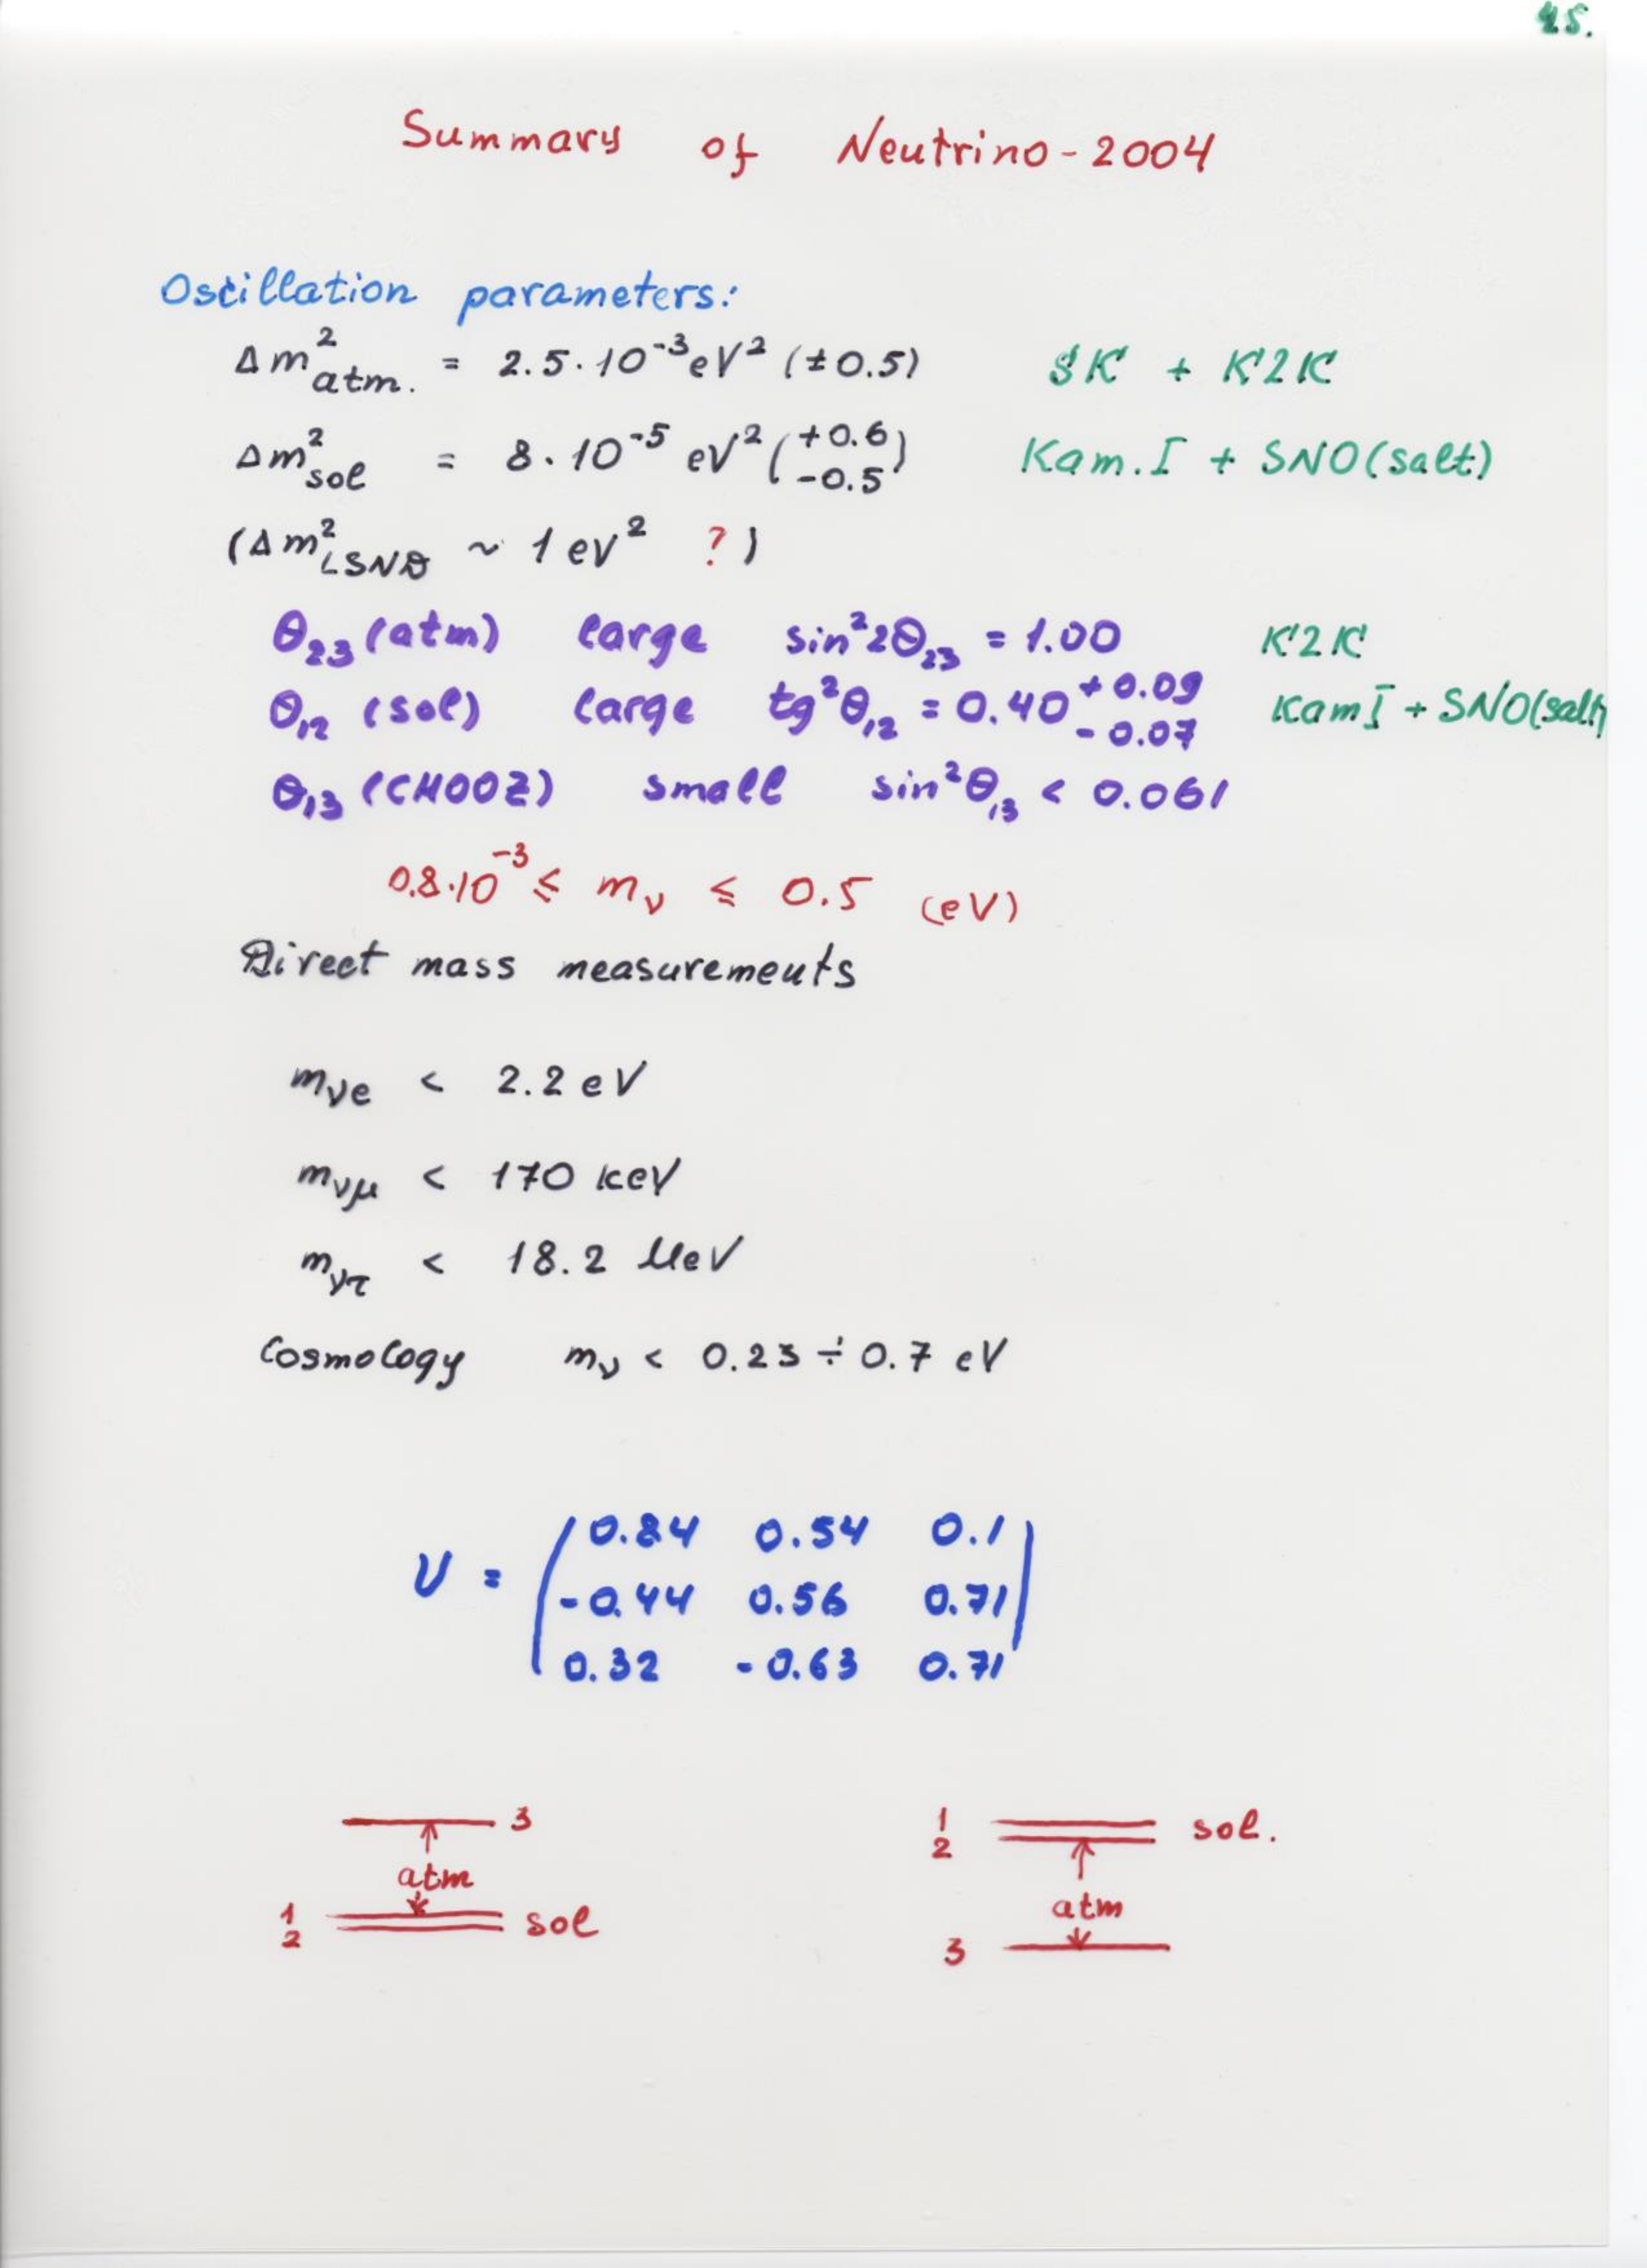 45.
Summary of Neutrino-2004
Oscillation parameters:
Δm²atm. = 2.5·10⁻³eV² (±0.5) SK + K2K
Δm²sol = 8·10⁻⁵ eV² (+0.6 -0.5) Kam.I + SNO(salt)
(Δm²LSND ~ 1 eV² ?)
θ₂₃ (atm) large sin²2θ₂₃ = 1.00 K2K
θ₁₂ (sol) large tg²θ₁₂ = 0.40 +0.09 -0.07 KamI + SNO(salt)
θ₁₃ (CHOOZ) small sin²θ₁₃ < 0.061
0.8·10⁻³ ≤ mν ≤ 0.5 (eV)
Direct mass measurements
mνe < 2.2 eV
mνμ < 170 keV
mντ < 18.2 MeV
Cosmology mν < 0.23 ÷ 0.7 eV
U = (0.84 0.54 0.1
-0.44 0.56 0.71
0.32 -0.63 0.71)
3
atm
1
2 sol
1
2 sol.
atm
3